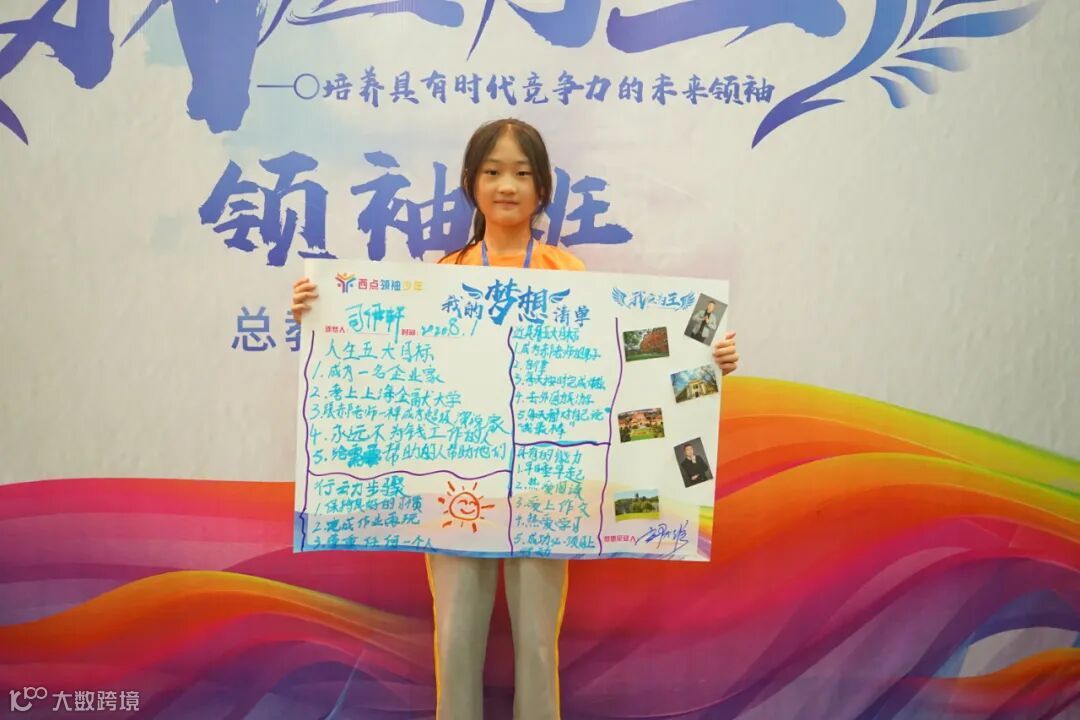 一〇培养具有时代竞争力的未来领袖
领袖班
总教
西点领袖少年
我的梦想清单
我立为王
时间：2020.8.1
人生五大目标
1.成为一名企业家
2.考上上海金融大学
3.跟郝老师一样成为超级演说家
4.永远不为钱工作的人
5.给需要帮助的人帮助他们
行动力步骤
1保持良好的习惯
2.完成作业再玩
3.尊重任何一个人
3.每天按时完成作业
4.去外国游
5.每天都对自己说
"我最棒"
具有的能力
1.早睡早起
2.热爱阅读
3.爱上作文
4.热爱学习
5.成功必须马上
行动
梦想见证人
大数跨境